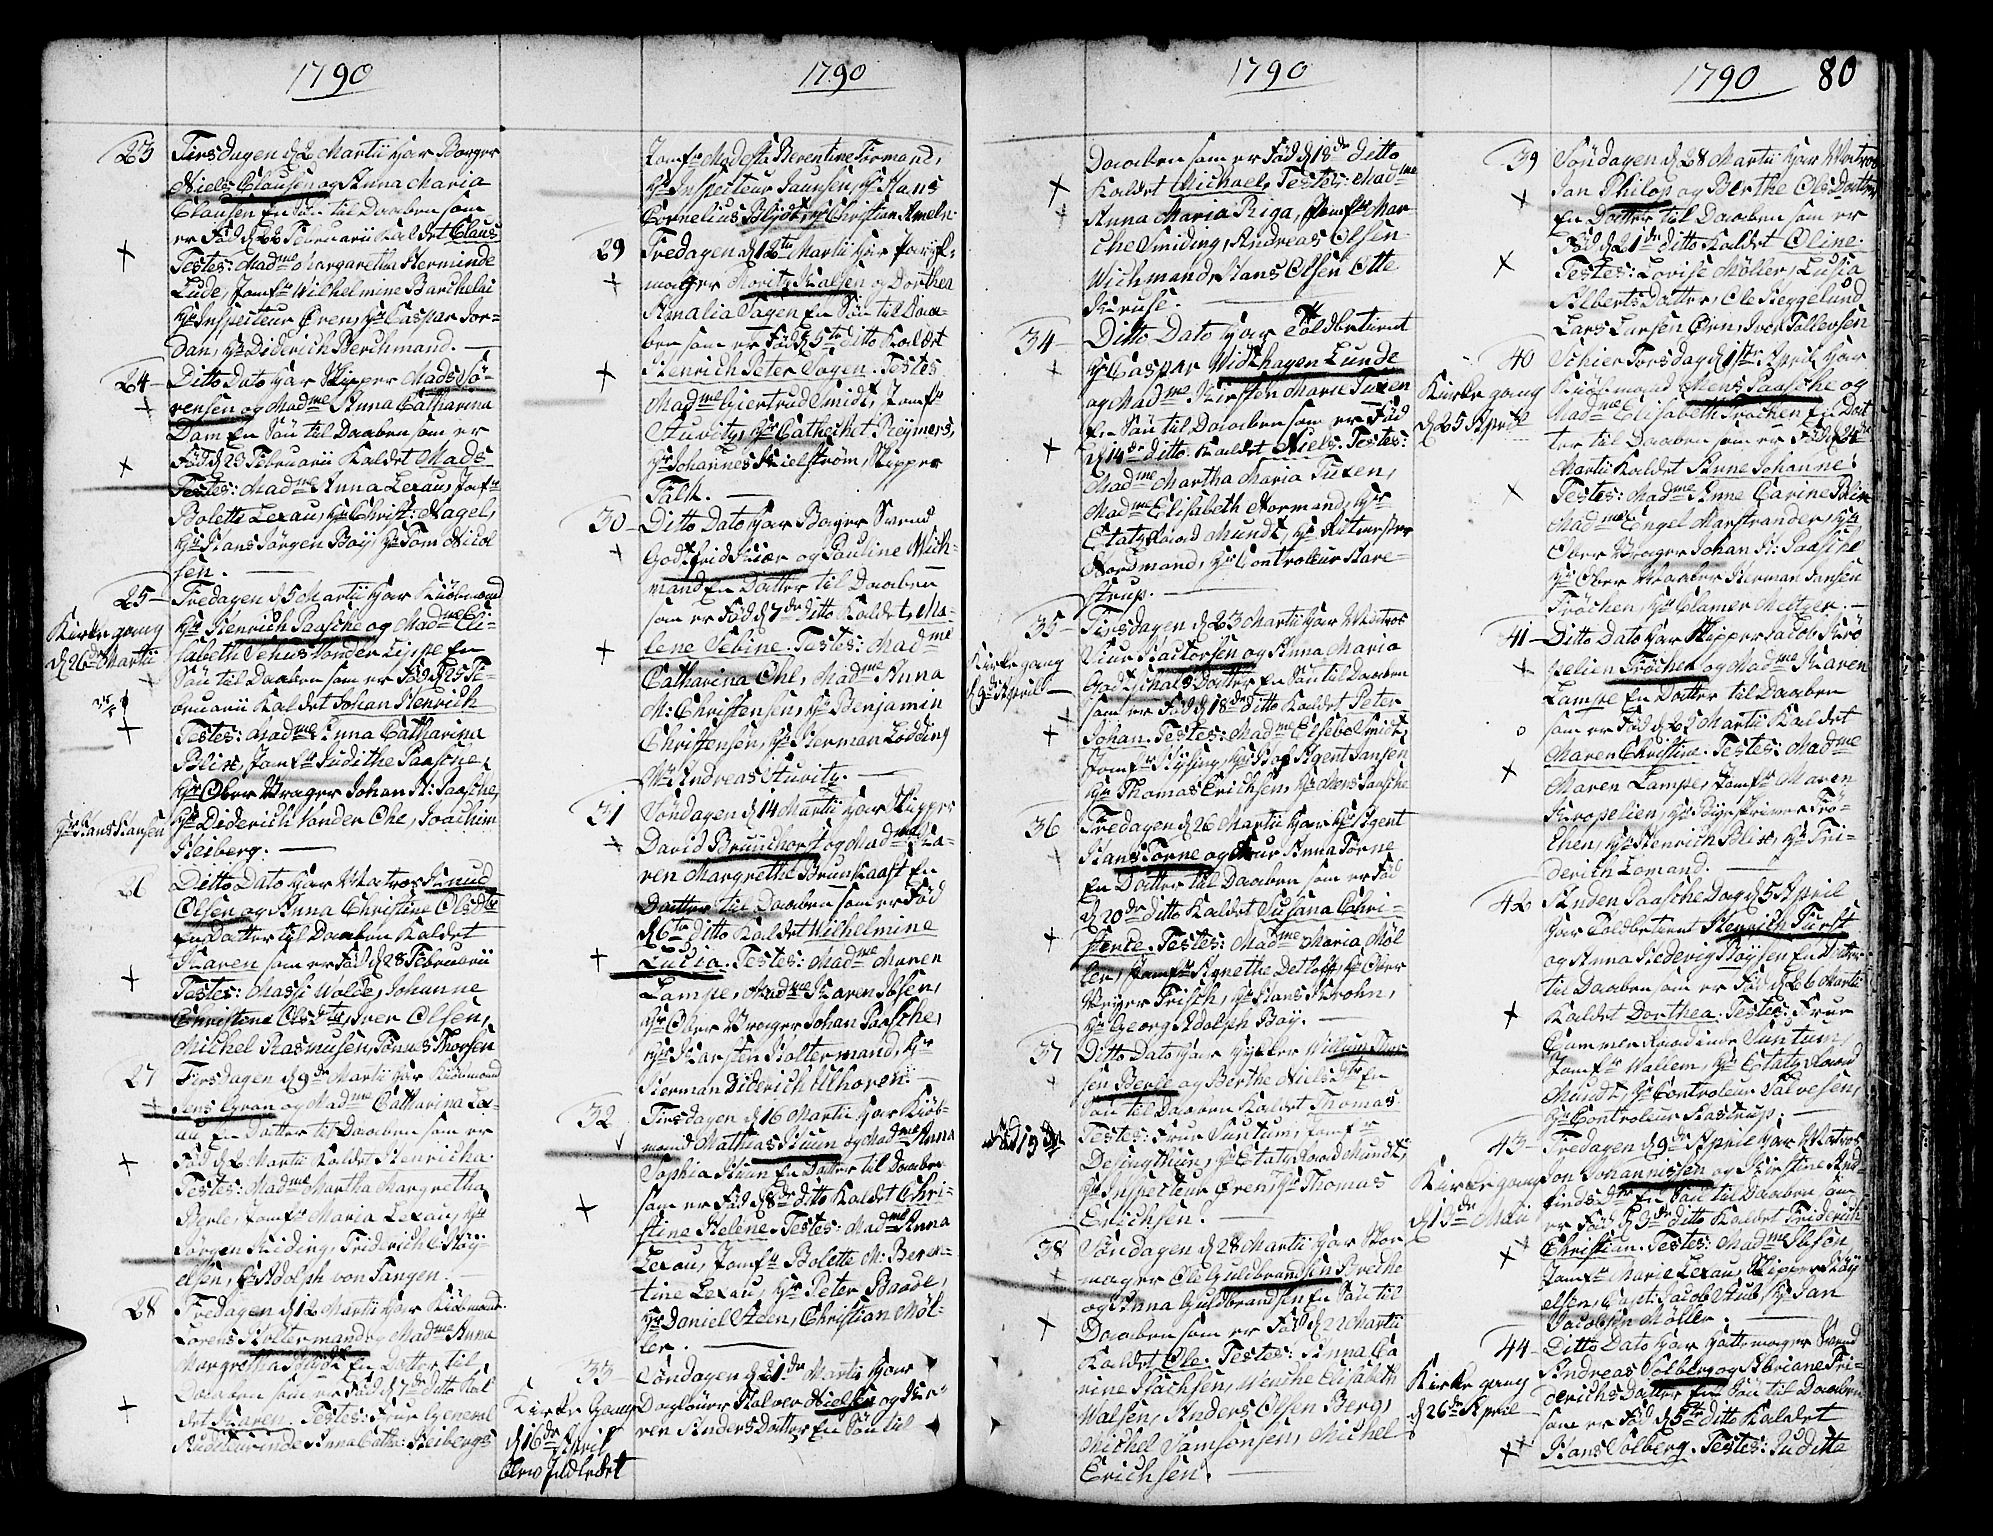 1790
23 Tirsdagen d 2 Martii har Borger
Niels Clausen og Anna Maria
Clausen En Sön til Daaben som
er Föd d 22 Februarii Kaldet Claus
Testes: Madme Margaretha Herminde
Lude, Jomfr Wilhelmine Barchelai
Hr Inspecteur Ören, Hr Caspar Jor-
dan, Hr Diderich Berchmand.
24 Ditto Dato har Skipper Mads Sö-
rensen og Madme Anna Catharina
Dam En Sön til Daaben som er
Föd d 23 Februarii Kaldet Mads
Testes: Madme Anna Lexau, Jomfr
Bolette Lexau, Hr Christ: Nagel,
Hr Hans Jörgen Boij, Hr Tom Nicol
sen.
25 Fredagen d 5 Martii har Kiöbmand
Hr Henrich Paasche og Madme Eli-
Kirkegang
d 26de Martii
sabeth Tehus Vonder Lippe En
Sön til Daaben som er Föd d 25 Fe-
bruarii Kaldet Johan Henrich
Testes: Madme Anna Catharina
Blix, Jomfr Judithe Paasche,
Hr Ober Vrager Johan H: Paasche,
Hr Hans Hansen
Hr Diderich Vonder Ohe, Joachim
Heiberg.
26 Ditto Dato har Matros Knud
Olsen og Anna Christine Olsdtr
En Datter til Daaben Kaldet
Karen som er Föd d 28 Februarii
Testes: Massi Wolde, Johanne
Christine Olsdtr, Iver Olsen,
Michel Rasmusen, Tönnes Thorsen
27 Tirsdagen d 9de Martii har Kiöbmand
Jens Gran og Madme Catharina Lex-
au En Datter til Daaben som er
Föd d 2 Martii Kaldet Henricha
Testes: Madme Martha Margretha
Berle, Jomfr Maria Lexau, Hr
Jörgen Kiding, Friderich C Höy-
elsen, C: Adolph von Tangen.
28 Fredagen d 12 Martii har Kiöbmand
Lorens Holtermand og Madme Anna
Margretha En Datter til
Daaben som er Föd d 7de ditto Kal-
det Karen. Testes: Frue General
Auditeurinde Anna Catha: Heibergs
1790
Jomfr Modesta Berentine Formand,
Hr Inspecteur Jansen, Hr Hans
Cornelius Blydt, Hr Christian Ameln.
29 Fredagen d 12te Martii har
mager Moritz Halsen og Dorthea
Amalia Sagen En Sön til Daa-
ben som er Föd d 5te ditto Kaldet
Henrich Peter Sagen. Testes
Madme Giertrud Smidt, Jomfr
Stuvitz, Hr Cathechet Reymers,
Hr Johannes Kielström, Skipper
Falk.
30 Ditto Dato har Borger Svend
Godtfrid Kiær og Pauline Wich-
mand En Datter til Daaben
som er Föd d 7de ditto Kaldet, Ma-
lene Sebine. Testes: Madme
Catharina Ohl, Madme Anna
M: Christensen, Hr Benjamin
Christensen, Hr Herman Lödding
Mr Andreas Stuvitz.
31 Söndagen d 14 Martii har Skipper
David Brunchorst og Madme Ka-
ren Margrethe Brunkaast En
Datter til Daaben som er Föd
d 6te ditto Kaldet Wilhelmine
Lucia. Testes: Madme Maren
Lampe, Madme Karen Ibsen,
Hr Ober Vrager Johan Paasche,
Hr Karsten Holtermand, Hr
Herman Diderich Uhoren.
32 Tirsdagen d 16 Martii har Kiöb-
mand Mathias Kuun og Madme Anna
Sophia Kuun En Datter til Daaben
som er Föd d 8de ditto Kaldet Chri-
stine Helene. Testes: Madme Anna
Lexau, Jomfr Bolette M: Beren-
tine Lexau, Hr Peter Baade,
Hr Daniel Steen, Christian Möl-
ler.
33 Söndagen d 21de Martii har
Kirke Gang
d 16de April
blev Indledet
Daglöner Halvor Nielsen og Ka-
ren Anders Datter En Sön til
1790
Daaben som er Föd d 18de ditto
Kaldet Michael, Testes: Madme
Anna Maria Riga, Jomfr Mar-
che Smiding, Andreas Olsen
Wichmand, Hans Olsen Otte
Kruse.
34 Ditto Dato har Toldbetient
Hr Caspar Widthagen Lunde
og Madme Kirsten Marie Tuxen
En Sön til Daaben som er Föd
d 14de ditto Kaldet Niels. Testes:
Madme Martha Maria Tuxen,
Madme Elisabeth Normand, Hr
Etatz Raad Mundt, Hr Ritmester
Nordmand, Hr Controleur Hare-
strup.
35 Tirsdagen d 23 Martii har Matros
Siur Hactorsen og Anna Maria
Kirke gang
d 9de April
Godtschalgs Datter En Sön til Daaben
som er Föd d 18de ditto Kaldet Peter
Johan. Testes: Madme Elsebe Smidt,
Jomfr Kysing, Hr Agent Jansen
Hr Thomas Erichsen, Hr Mens Paasche
36 Fredagen d 26 Martii har Hr Agent
Hans Torne og Frue Anna Torne
En Datter til Daaben som er Föd
d 20de ditto Kaldet Susana Chri-
stence. Testes: Madme Maria Möl
ler, Jomfr Agnethe Detloff, Hr Ober
Krieger Frisch, Hr Hans Krohn,
Hr Georg Adolph Boy.
37 Ditto Dato har Hyker Willum Han-
sen Berse og Berthe Nielsdtr En
Sön til Daaben Kaldet Thomas
Föd 19de
Testes: Frue Suntum, Jomfr
Desingthun, Hr Etatz Raad Mundt,
Hr Inspecteur Ören, Hr Thomas
Erichsen.
38 Söndagen d 28 Martii har Skoe-
mager Ole Guldbrandsen Brecke
og Anna Guldbrandsen En Sön til
Daaben som er Föd d 22 Martii
Kaldet Ole. Testes: Anna Ca
rine Isachsen, Wenche Elisabeth
Walsen, Anders Olsen Berg,
Michel Samsonsen, Michel
Erichsen.
1790 80
39 Söndagen d 28 Martii har Matros
Jan Philop og Berthe Ols Datter
En Datter til Daaben som er
Föd d 21de ditto Kaldet Oline.
Testes: Lovise Möller, Lusia
Alberts Datter, Ole Heggelund
Lars Larsen Örn, Iver Tollevsen
40 Schier Torsdag d 1ste April har
Kirke gang
d 25 April
Kiöbmand Mens Paasche og
Madme Elisabeth Fröchen En Dat
ter til Daaben som er Föd d 24de
Martii Kaldet Anne Johanne
Testes: Madme Anne Carine Blix
Madme Engel Marstrander, Hr
Ober Vrager Johan H: Paasche
Hr Ober Vrager Herman Jansen
Fröchen, Hr Clamer Meltzer.
41 Ditto Dato har Skipper Jacob Kro
pelien Fröchen og Madme Karen
Lampe En Datter til Daaben
som er Föd d 25 Martii Kaldet
Maren Christine. Testes: Madme
Maren Lampe, Jomfr Maren
Kropelien, Hr Byeskriver Frö-
chen, Hr Henrich Blix, Hr Fri-
derich Lomand.
42 Anden Paasche Dag d 5 April
har Toldbetient Henrich Fürst
og Anna Hedevig Boysen En Datter
til Daaben som er Föd d 26 Martii
Kaldet Dorthea. Testes: Frue
Cammer Raadinde Suntum,
Jomfr Wallem, Hr Etatz Raad
Mundt, Hr Controleur Salvesen,
Hr Controleur Hastrup.
43 Fredagen d 9de April har Matros
Kirke gang
d 13de Maii
Jon Johannissen og Kirstine And
finds dtr En Sön til Daaben som
er Föd d 3de ditto Kaldet Friderich
Christian. Testes: Madme Ibsön
Jomfr Marie Lexau, Skipper Höy
elsen, Capt: Jacob Stub, Hr Jan
Jacobsen Möller.
44 Ditto Dato har Hattemager Svend
Kirke gang
d 26de April
Andreas Solberg og Abriane Fri-
derichs Datter En Sön til Daaben
som er Föd d 5te ditto Kaldet
Hans Solberg. Testes: Juditte